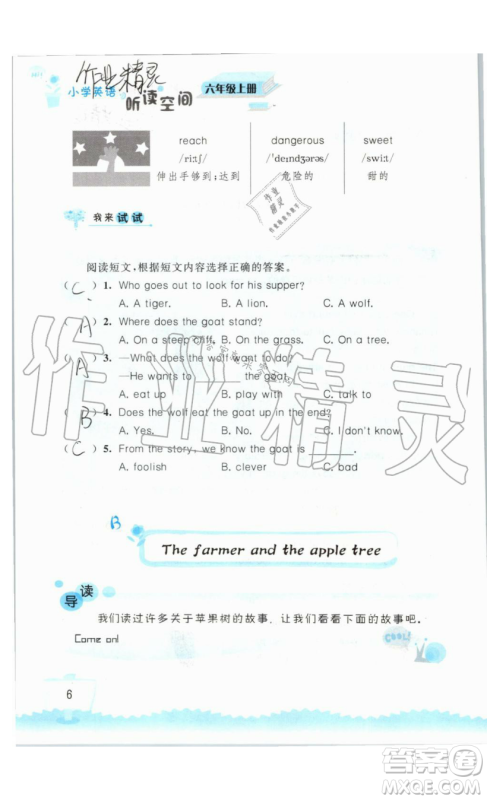 作业精灵
小学英语
听读空间
六年级上册
reach dangerous sweet
/riːtʃ/ /ˈdeɪndʒərəs/ /swiːt/
伸出手够到;达到 危险的 甜的
作业
精灵
我来试试
阅读短文,根据短文内容选择正确的答案。
( C ) 1. Who goes out to look for his supper?
A. A tiger. B. A lion. C. A wolf.
( A ) 2. Where does the goat stand?
A. On a steep cliff. B. On the grass. C. On a tree.
( A ) 3. —What does the wolf want to do?
—He wants to ______ the goat.
A. eat up B. play with C. talk to
( B ) 4. Does the wolf eat the goat up in the end?
A. Yes. B. No. C. I don't know.
( C ) 5. From the story, we know the goat is ______.
A. foolish B. clever C. bad
作业精灵
B
The farmer and the apple tree
导读
我们读过许多关于苹果树的故事,让我们看看下面的故事吧。
Come on!
COOL!
6
答案圈
MXQE.COM